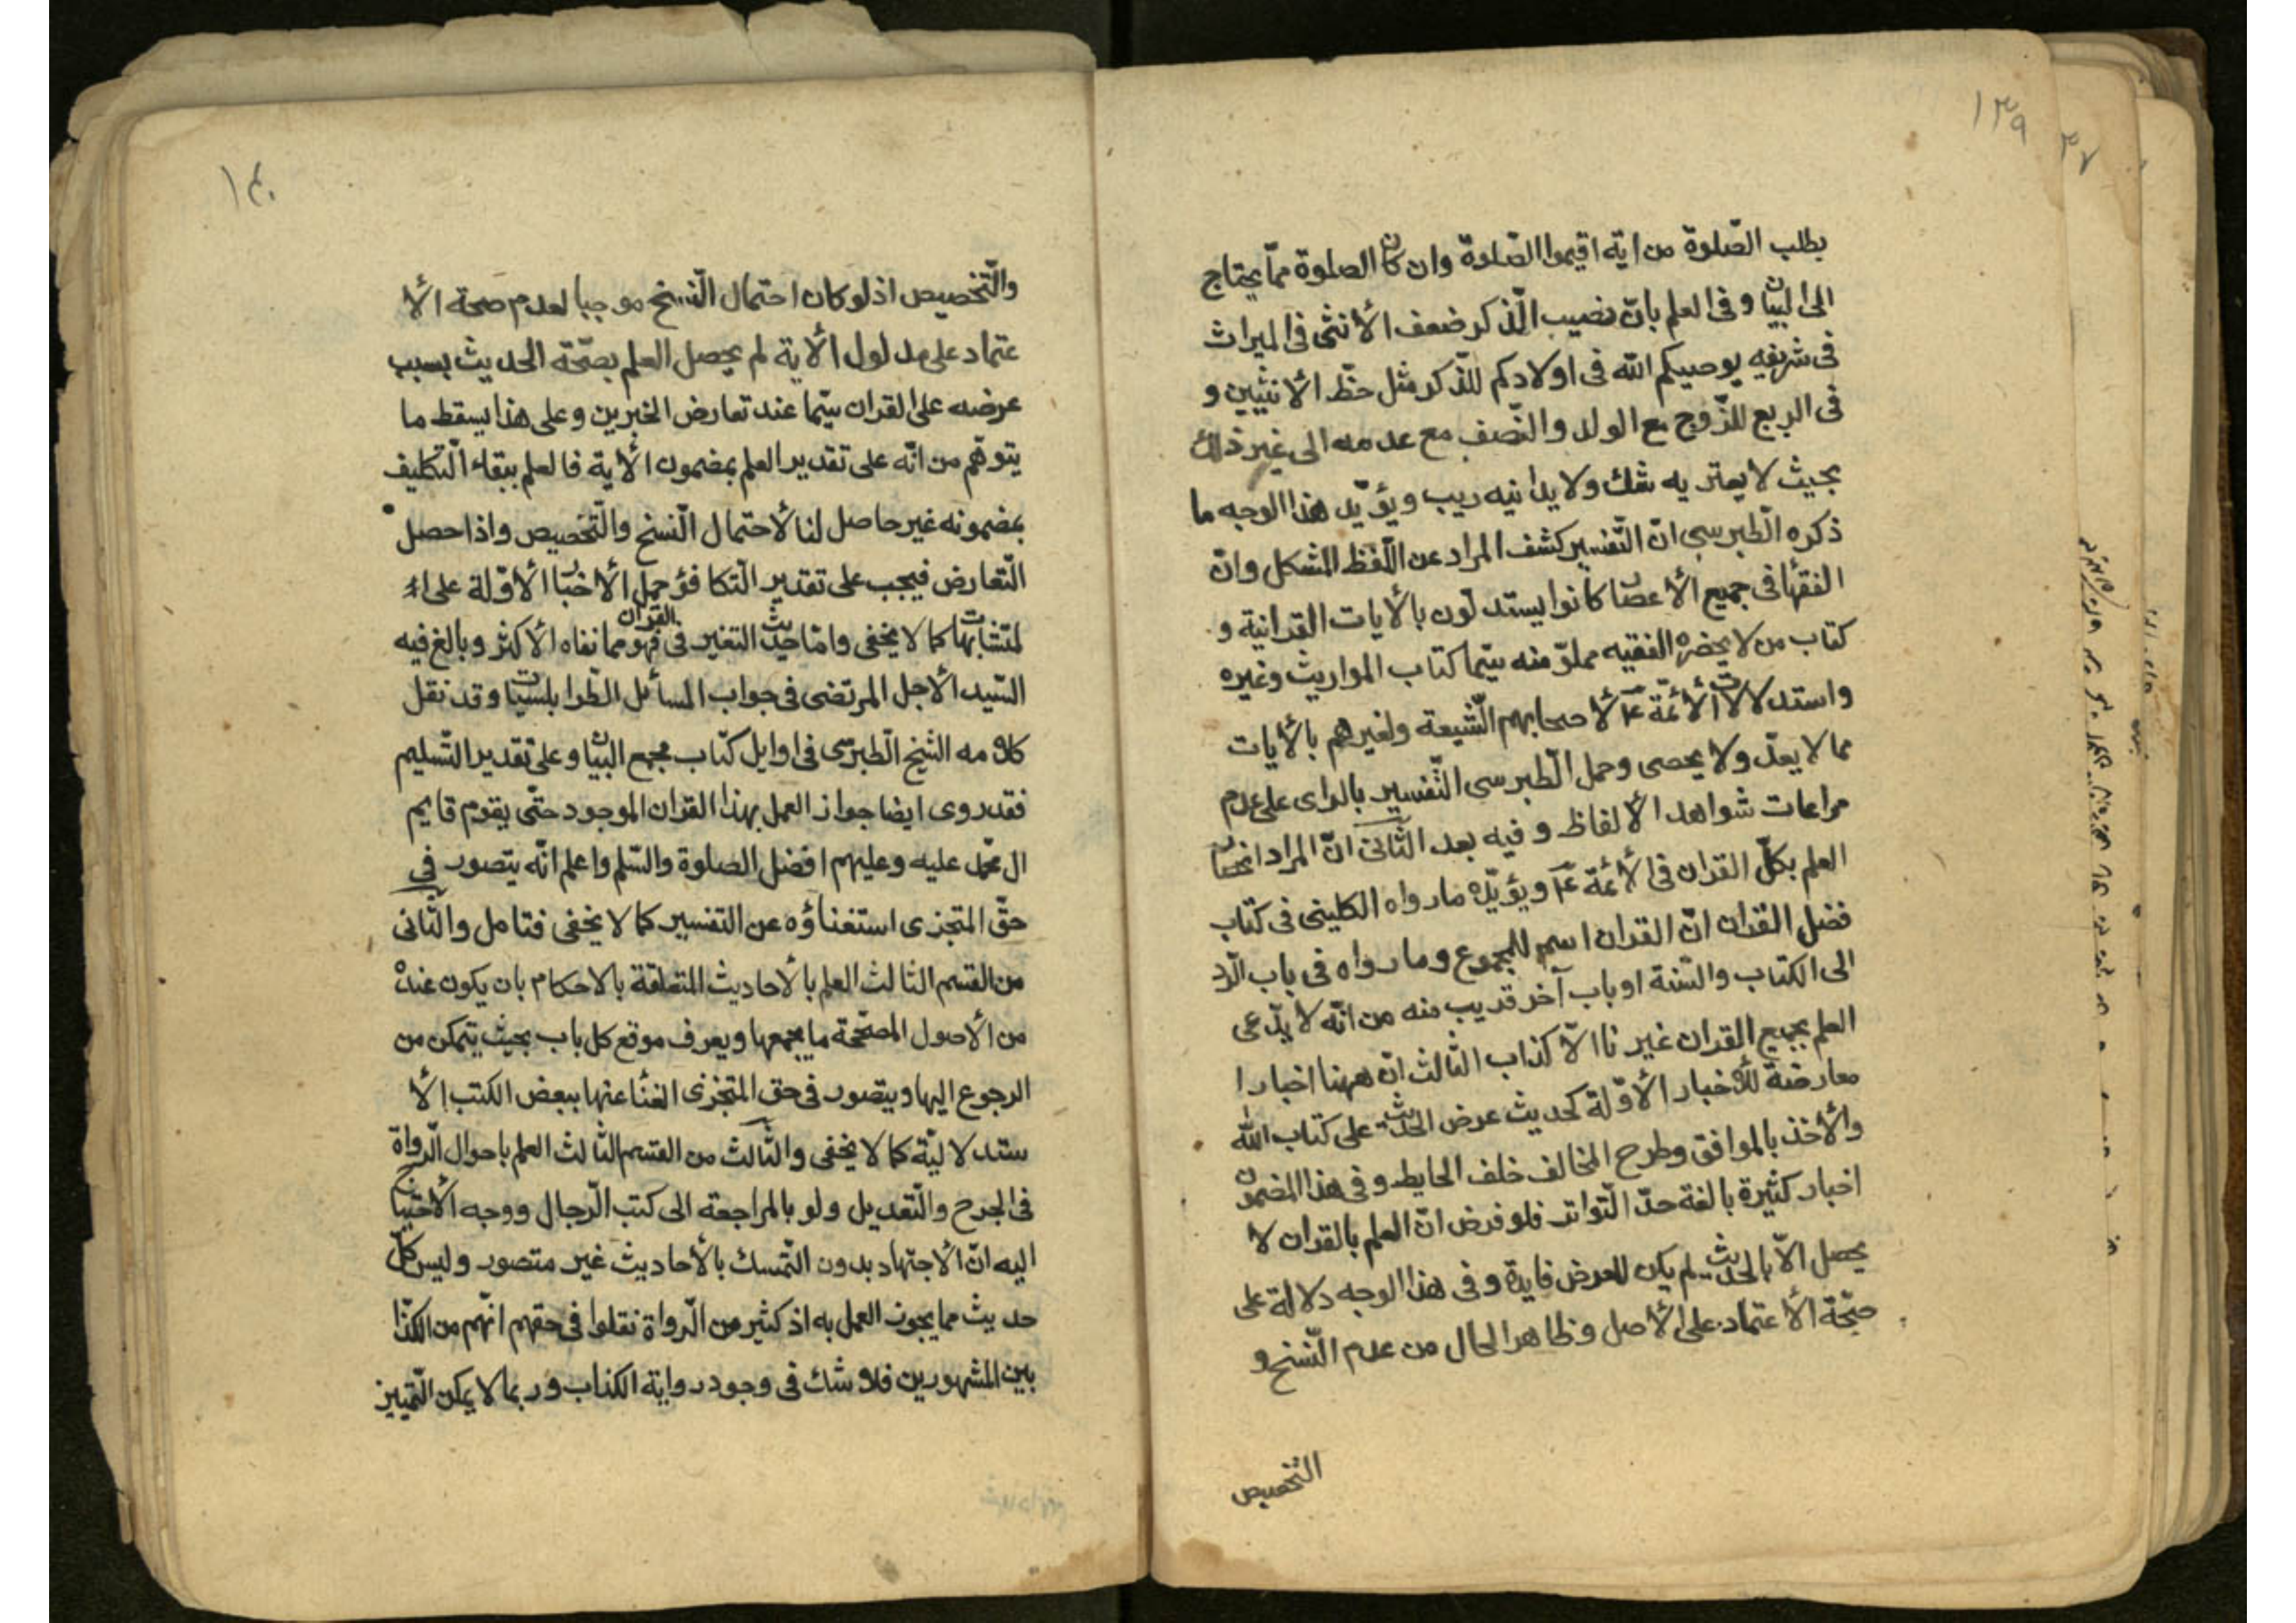 ١٣٩
بطلب الصّلوة من اية اقيموا الصّلوة وان كان الصلوة ممّا يحتاج
الى البيان و فى العلم بانّ نصيب الذّكر ضعف الأنثى فى الميراث
فى شريفه يوصيكم اللّه فى اولادكم للذّكر مثل حظّ الأنثيين و
فى الربع للزّوج مع الولد والنّصف مع عدمه الى غير ذلك
بحيث لا يعتريه شك ولا يدانيه ريب ويؤيّد هذا الوجه ما
ذكره الطّبرسى انّ التّفسير كشف المراد عن اللّفظ المشكل وانّ
الفقهاء فى جميع الأعصار كانوا يستدلّون بالأيات القرانية و
كتاب من لا يحضره الفقيه مملوّ منه سيّما كتاب المواريث وغيره
واستدلالات الأئمّة ع لأصحابهم الشّيعة ولغيرهم بالأيات
مما لا يعدّ ولا يحصى وحمل الطّبرسى التّفسير بالراى على عدم
مراعات شواهد الألفاظ و فيه بعد الثّانى انّ المراد انحصار
العلم بكلّ القران فى الأئمّة ع ويؤيّده ما رواه الكلينى فى كتاب
فضل القران انّ القران اسم للمجموع وما رواه فى باب الرّد
الى الكتاب والسّنة او باب آخر قريب منه من انّه لا يدّعى
العلم بجميع القران غيرنا الاّ كذاب الثّالث انّ ههنا اخبارا
معارضة للأخبار الأوّلة كحديث عرض الحديث على كتاب اللّه
والأخذ بالموافق وطرح المخالف خلف الحايط وفى هذا المضمون
اخبار كثيرة بالغة حدّ التّواتر فلو فرض انّ العلم بالقران لا
يحصل الاّ بالحديث لم يكن للعرض فايدة و فى هذا الوجه دلالة على
صحّة الأعتماد على الأصل وظاهر الحال من عدم النّسخ و
التخصيص
١٤٠
والتّخصيص اذ لو كان احتمال النّسخ موجبا لعدم صحة الأ
عتماد على مدلول الأية لم يحصل العلم بصحّة الحديث بسبب
عرضه على القران سيّما عند تعارض الخبرين وعلى هذا يسقط ما
يتوهّم من انّه على تقدير العلم بمضمون الأية فالعلم ببقاء التّكليف
بمضمونه غير حاصل لنا لأحتمال النّسخ والتّخصيص واذا حصل
التّعارض فيجب على تقدير التّكافؤ حمل الأخبار الأوّلة على
لمتشابهات كما لا يخفى وامّا حديث التغير فى القران فهو مما نفاه الأكثر وبالغ فيه
السّيد الأجل المرتضى فى جواب المسائل الطّرابلسيات وقد نقل
كلامه الشيخ الطّبرسى فى اوايل كتاب مجمع البيان وعلى تقدير التّسليم
فقد روى ايضا جواز العمل بهذا القران الموجود حتّى يقوم قايم
ال محمّد عليه وعليهم افضل الصلوة والسّلم واعلم انّه يتصور فى
حقّ المتجزى استغناؤه عن التفسير كما لا يخفى فتامل والثّانى
من القسم الثالث العلم بالأحاديث المتعلقة بالاحكام بان يكون عنده
من الأصول المصحّحة ما يجمعها ويعرف موقع كل باب بحيث يتمكن من
الرجوع اليها ويتصور فى حق المتجزى الغناء عنها ببعض الكتب الأ
ستدلاليّة كما لا يخفى والثّالث من القسم الثّالث العلم باحوال الرّواة
فى الجرح والتّعديل ولو بالمراجعة الى كتب الرّجال ووجه الأحتياج
اليه انّ الأجتهاد بدون التّمسك بالأحاديث غير متصور وليس كلّ
حديث مما يجوز العمل به اذ كثير من الرّواة نقلوا فى حقهم انّهم من الكذّا
بين المشهورين فلا شك فى وجود رواية الكذاب وربما لا يمكن التّمييز